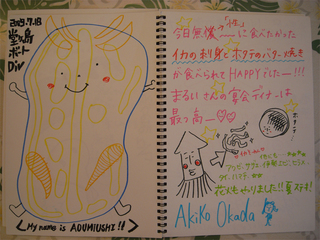 2009.7.18
堂ヶ島
ボート
Div
My name is AOUMIUSHI!!
今日無性に食べたかった
イカの刺身とホタテのバター焼き
が食べられてHAPPYでしたー!!!
まるいさんの宴会ディナーは
最っ高ー♡♡
ホタテ
花火もやりました!!夏大好き!
Akiko Okada